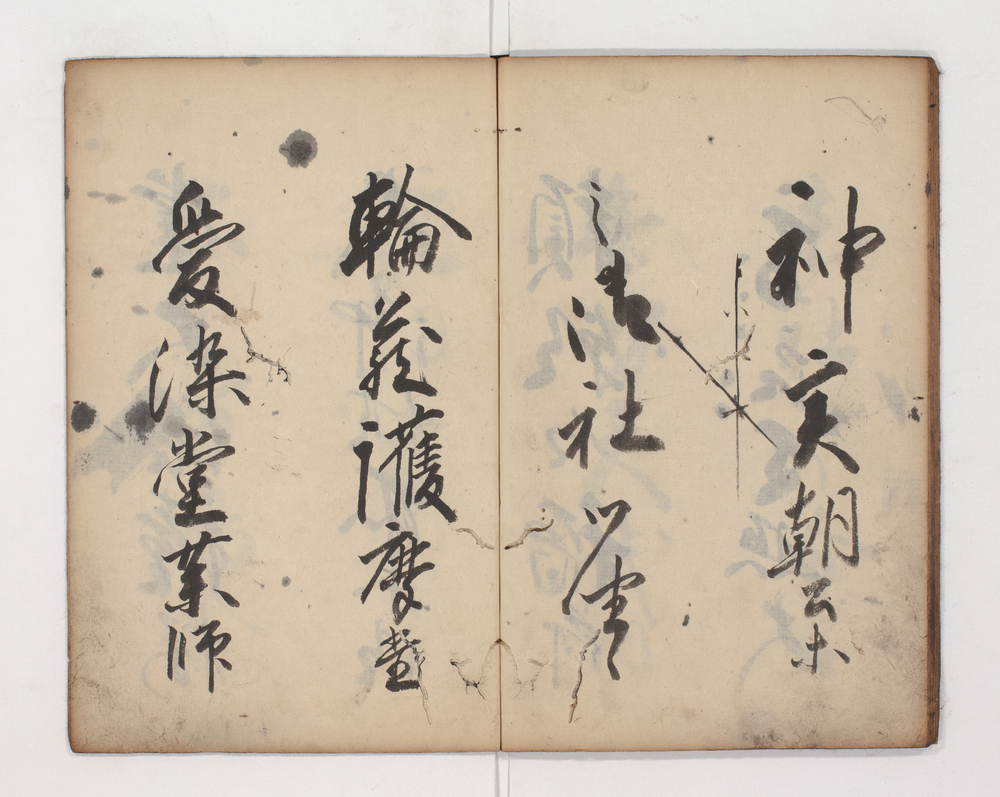 神実朝公木
之清社
輪蔵護摩堂
愛染堂薬師